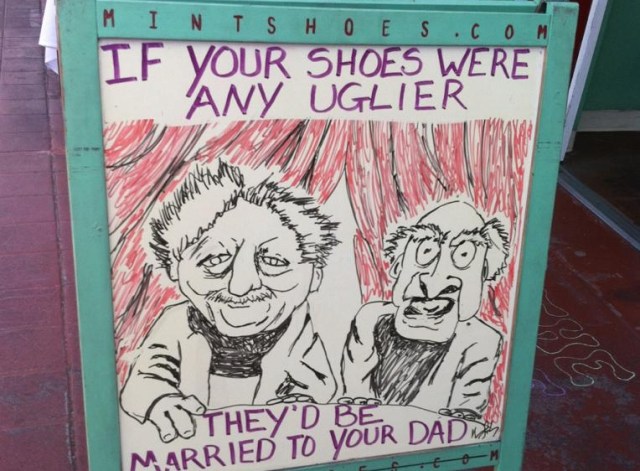 MINTSHOES.COM
IF YOUR SHOES WERE
ANY UGLIER
THEY'D BE
MARRIED TO YOUR DAD